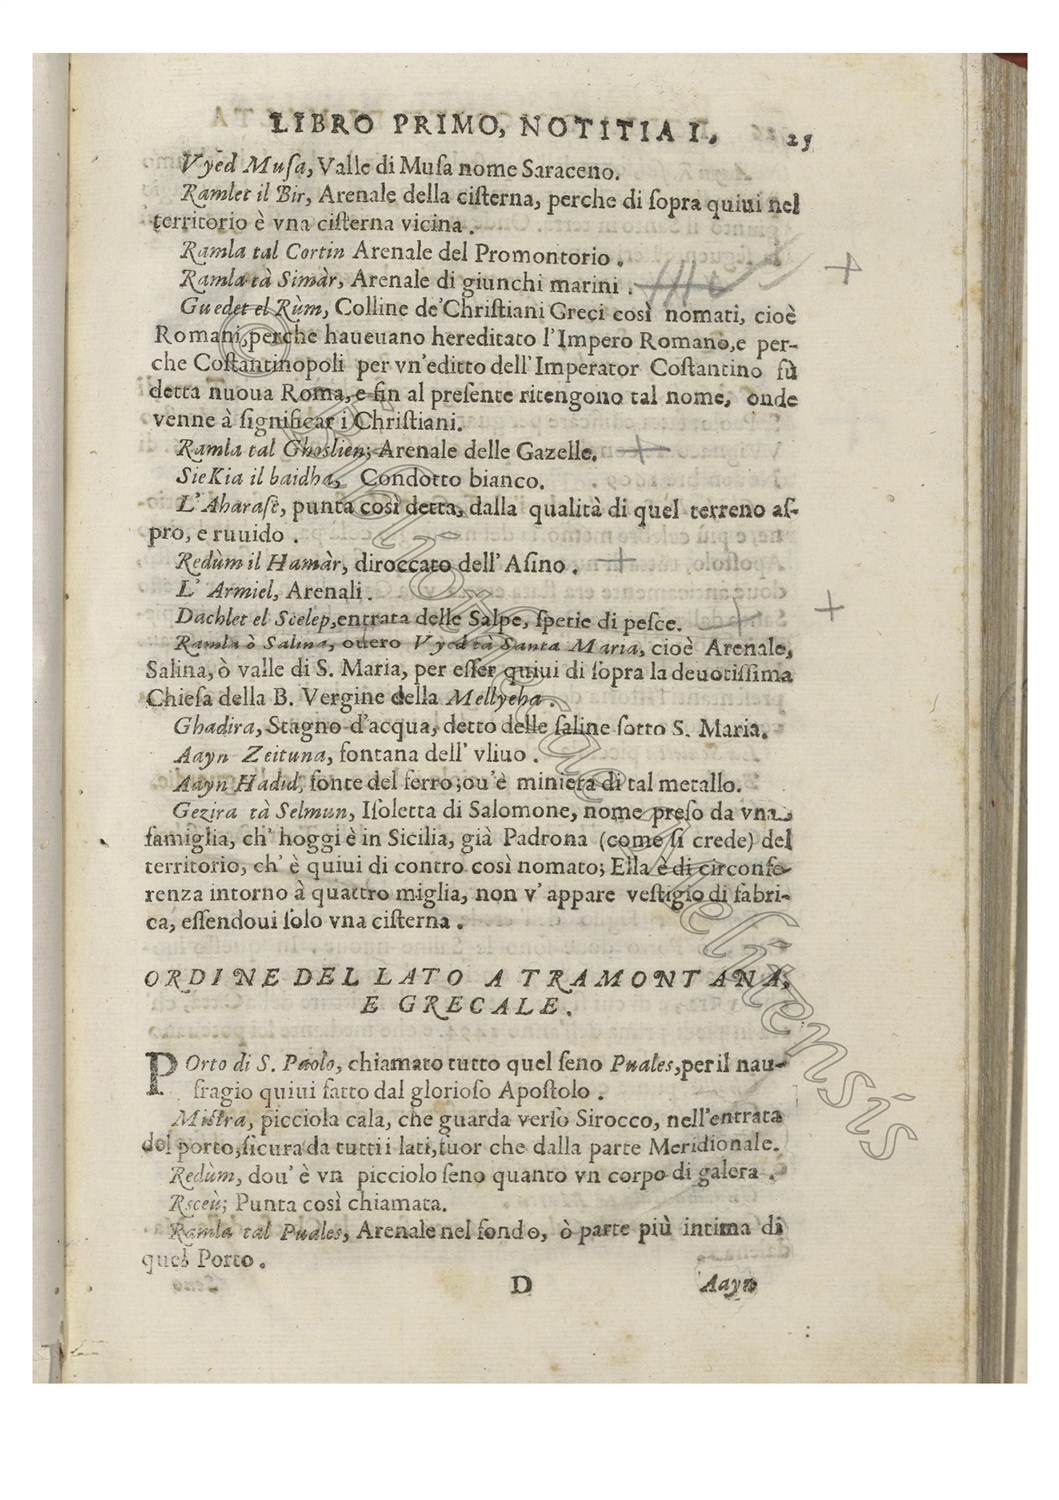 LIBRO PRIMO, NOTITIA I. 25
Vyed Muſa, Valle di Muſa nome Saraceno.
Ramlet il Bir, Arenale della ciſterna, perche di ſopra quiui nel
territorio è vna ciſterna vicina .
Ramla tal Cortin Arenale del Promontorio .
Ramla tà Simàr, Arenale di giunchi marini .
Guedet el Rùm, Colline de'Chriſtiani Greci così nomati, cioè
Romani,perche haueuano hereditato l'Impero Romano,e per-
che Coſtantinopoli per vn'editto dell'Imperator Coſtantino fù
detta nuoua Roma, e fin al preſente ritengono tal nome, onde
venne à ſignificar i Chriſtiani.
Ramla tal Ghoslien; Arenale delle Gazelle.
SieKia il baidha, Condotto bianco.
L' Aharaſè, punta così detta, dalla qualità di quel terreno aſ-
pro, e ruuido .
Redùm il Hamàr, diroccato dell' Aſino .
L' Armiel, Arenali .
Dachlet el Scelep,entrata delle Salpe, ſpetie di peſce.
Ramla ò Salina, ouero Vyed tà Santa Maria, cioè Arenale,
Salina, ò valle di S. Maria, per eſſer quiui di ſopra la deuotiſſima
Chieſa della B. Vergine della Mellyeha .
Ghadira, Stagno d'acqua, detto delle ſaline ſotto S. Maria.
Aayn Zeituna, fontana dell' vliuo .
Aayn Hadid, fonte del ferro;ou'è miniera di tal metallo.
Gezira tà Selmun, Iſoletta di Salomone, nome preſo da vna
famiglia, ch' hoggi è in Sicilia, già Padrona (come ſi crede) del
territorio, ch' è quiui di contro così nomato; Ella è di circonfe-
renza intorno à quattro miglia, non v' appare veſtigio di fabri-
ca, eſſendoui ſolo vna ciſterna .
ORDINE DEL LATO A TRAMONTANA,
E GRECALE.
POrto di S. Paolo, chiamato tutto quel ſeno Puales,per il nau-
fragio quiui fatto dal glorioſo Apoſtolo .
Miſtra, picciola cala, che guarda verſo Sirocco, nell'entrata
del porto,ſicura da tutti i lati,fuor che dalla parte Meridionale.
Redùm, dou' è vn picciolo ſeno quanto vn corpo di galera .
Rsceù; Punta così chiamata.
Ramla tal Puales, Arenale nel fondo, ò parte più intima di
quel Porto .
D Aayn
© Bibliotheca Melitensis